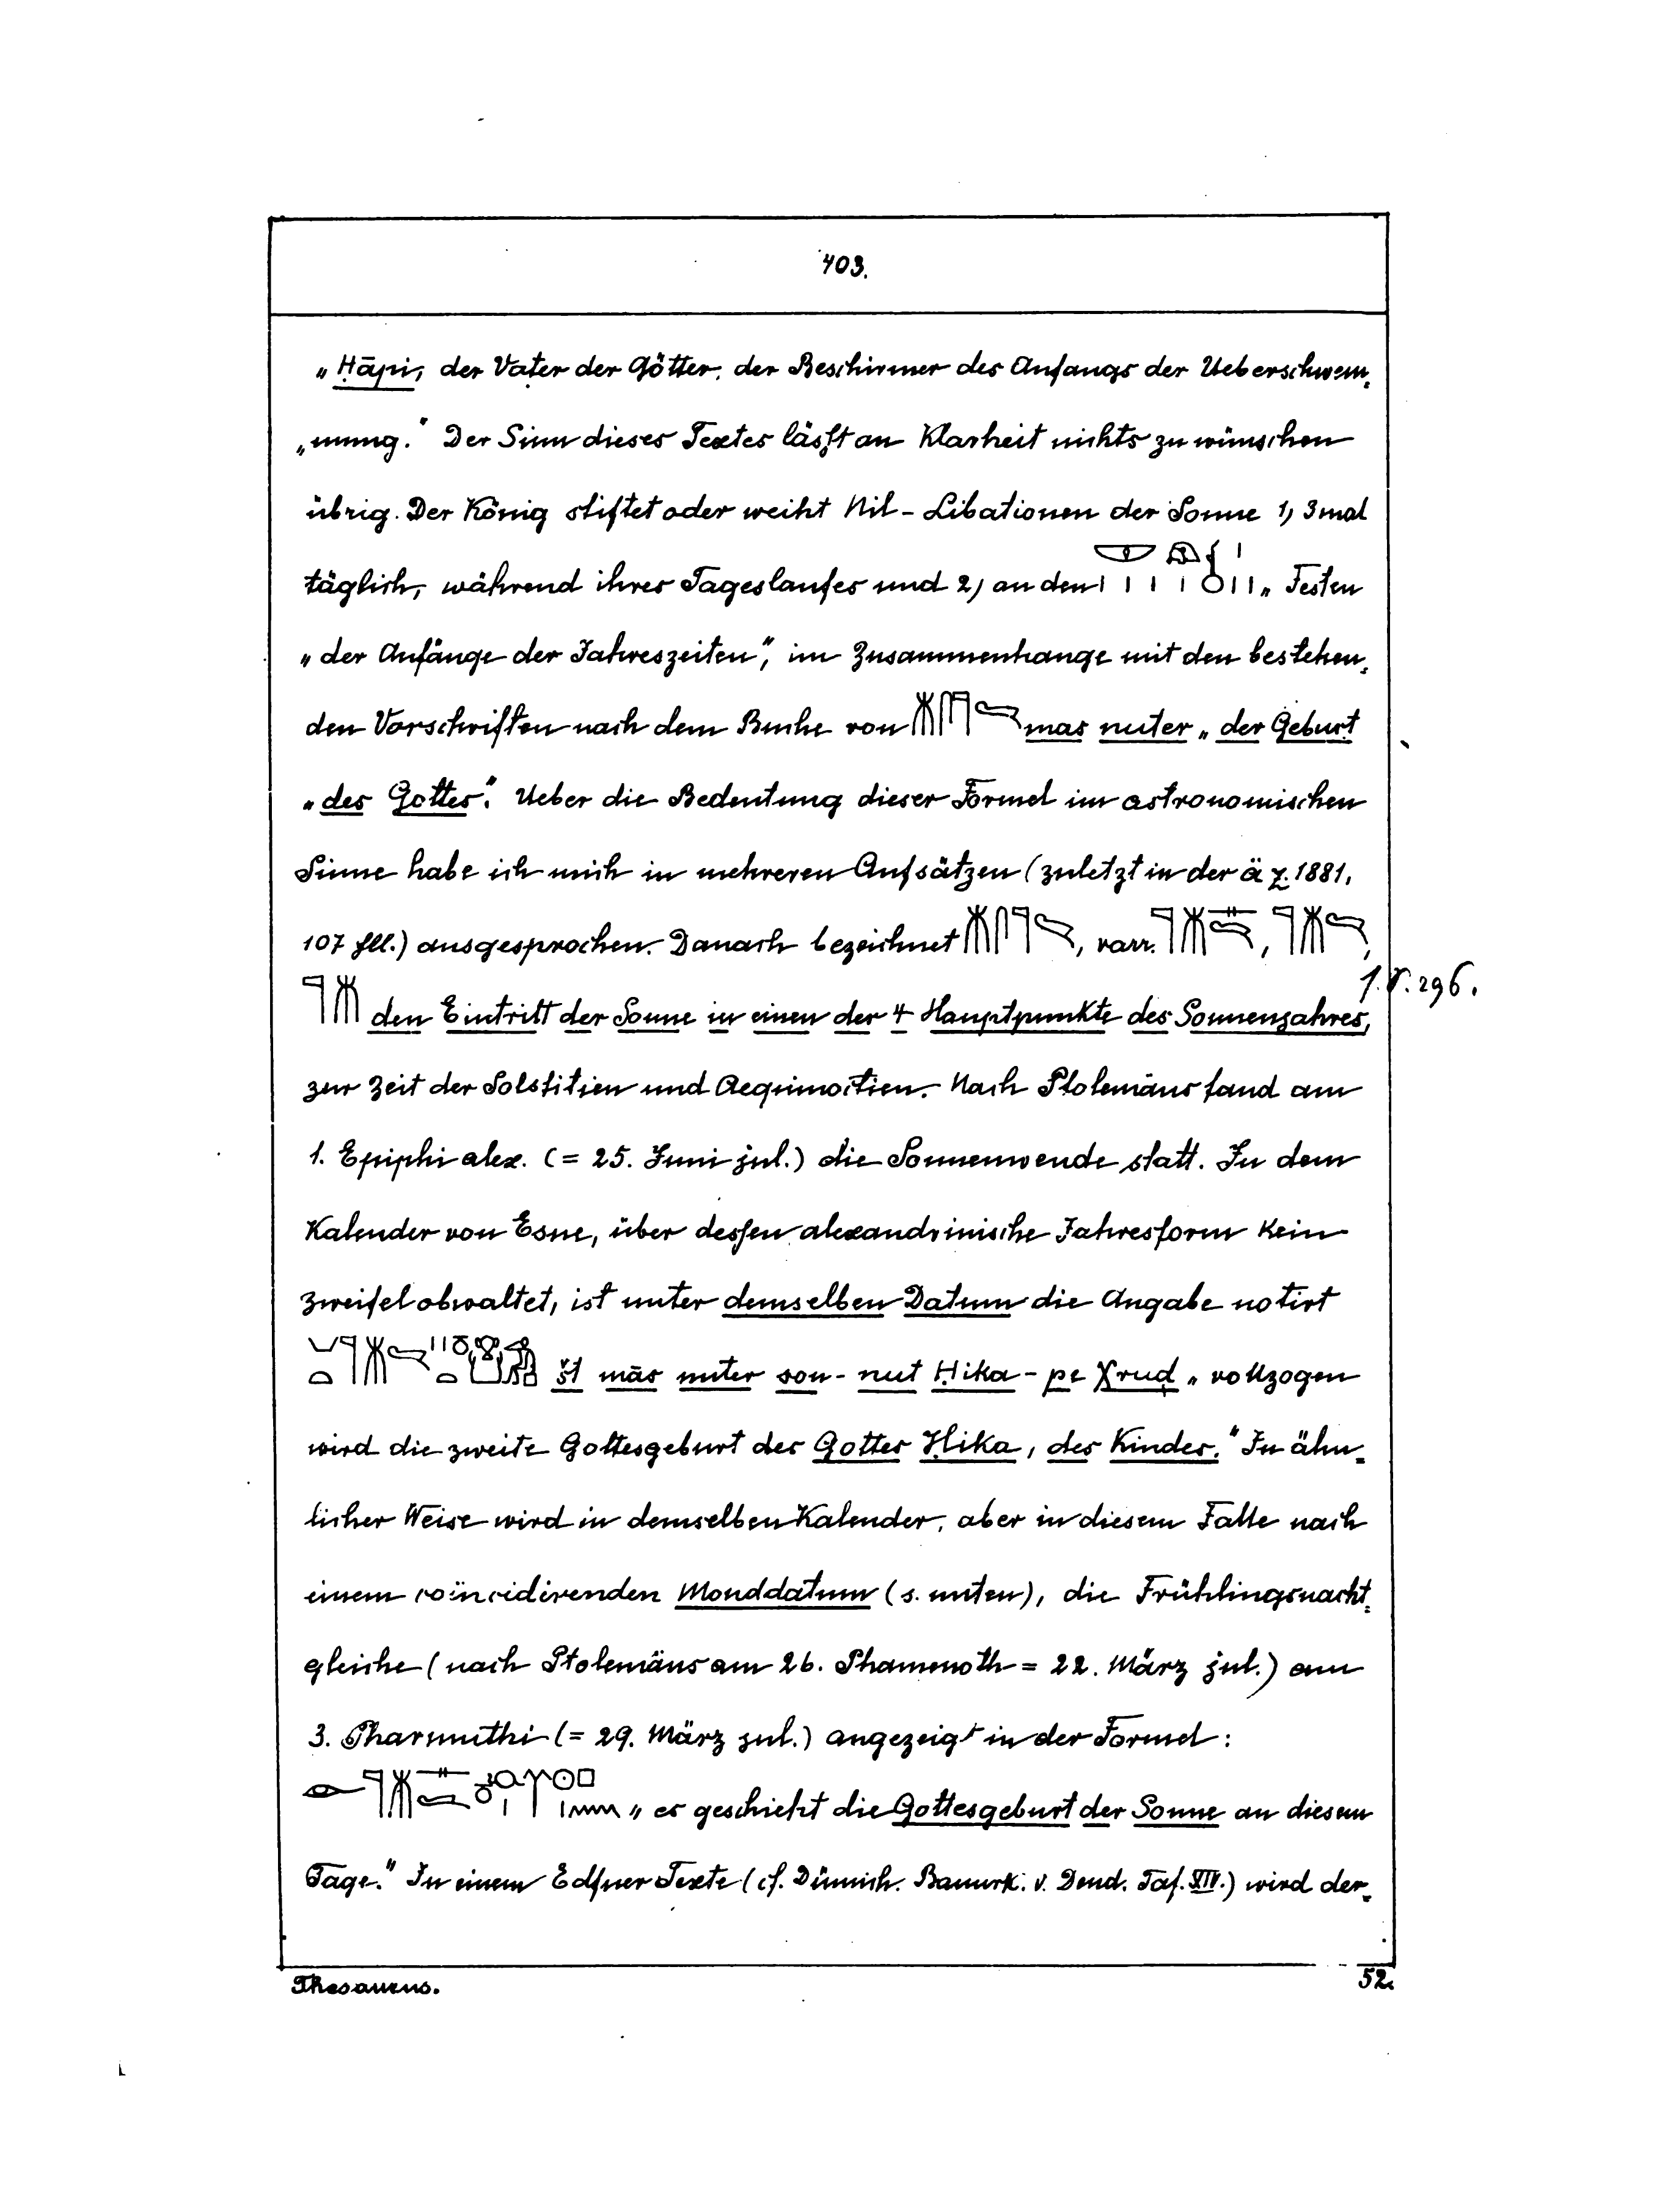 403.
„Ḥāpi, der Vater der Götter, der Beschirmer des Anfangs der Ueberschwem-
„mung.“ Der Sinn dieses Textes läßt an Klarheit nichts zu wünschen
übrig. Der König stiftet oder weiht Nil-Libationen der Sonne 1, 3 mal
täglich, während ihres Tageslaufes und 2, an den „Festen
„der Anfänge der Jahreszeiten“, im Zusammenhange mit den bestehen-
den Vorschriften nach dem Buche von mas nuter „der Geburt
„des Gottes“. Ueber die Bedeutung dieser Formel im astronomischen
Sinne habe ich mich in mehreren Aufsätzen (zuletzt in der ä z. 1881,
107 fll.) ausgesprochen. Danach bezeichnet , varr. , ,
1. V. 296.
den Eintritt der Sonne in einen der 4 Hauptpunkte des Sonnenjahres,
zur Zeit der Solstitien und Aequinoctien. Nach Ptolemäus fand am
1. Epiphi alex. (= 25. Juni jul.) die Sonnenwende statt. In dem
Kalender von Esne, über deßen alexandrinische Jahresform kein
Zweifel obwaltet, ist unter demselben Datum die Angabe notirt
mās nuter son-nut Ḥika-pe Xrud „vollzogen
wird die zweite Gottesgeburt des Gottes Ḥika, des Kindes.“ In ähn-
licher Weise wird in demselben Kalender, aber in diesem Falle nach
einem coïncidirenden Monddatum (s. unten), die Frühlingsnacht-
gleiche (nach Ptolemäus am 26. Phamenoth = 22. März jul.) am
3. Pharmuthi (= 29. März jul.) angezeigt in der Formel:
„es geschieht die Gottesgeburt der Sonne an diesem
Tage.“ In einem Edfuer Texte (cf. Dümich. Bauurk. v. Dend. Taf. XIV.) wird der-
Thesaurus.
52.